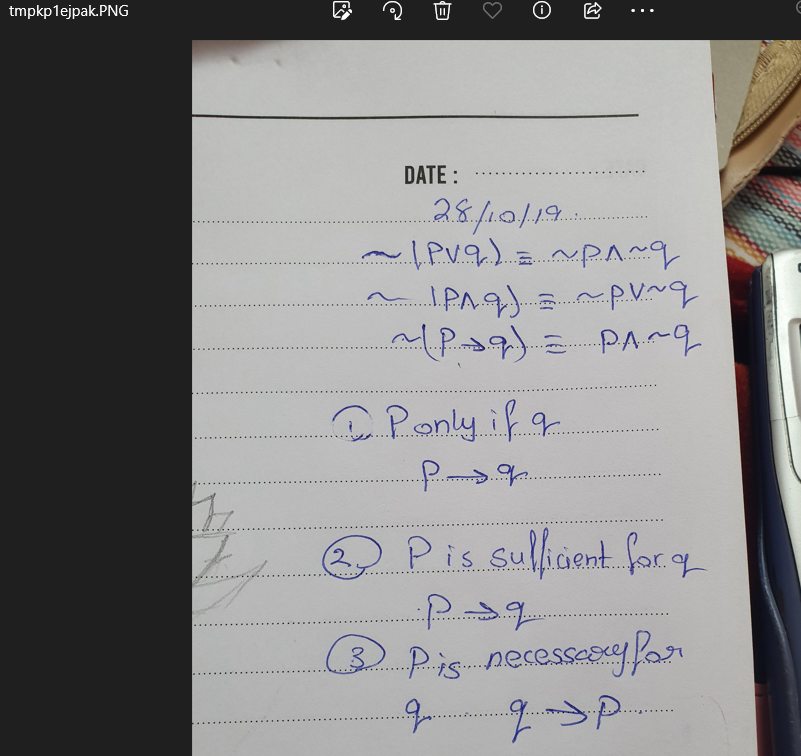 tmpkp1ejpak.PNG
DATE :
28/10/19.
~(p∨q) ≡ ~p∧~q
~(p∧q) ≡ ~p∨~q
~(p→q) ≡ p∧~q
① P only if q
p→q
② P is sufficient for q
p→q
③ P is necessary for
q q→p.